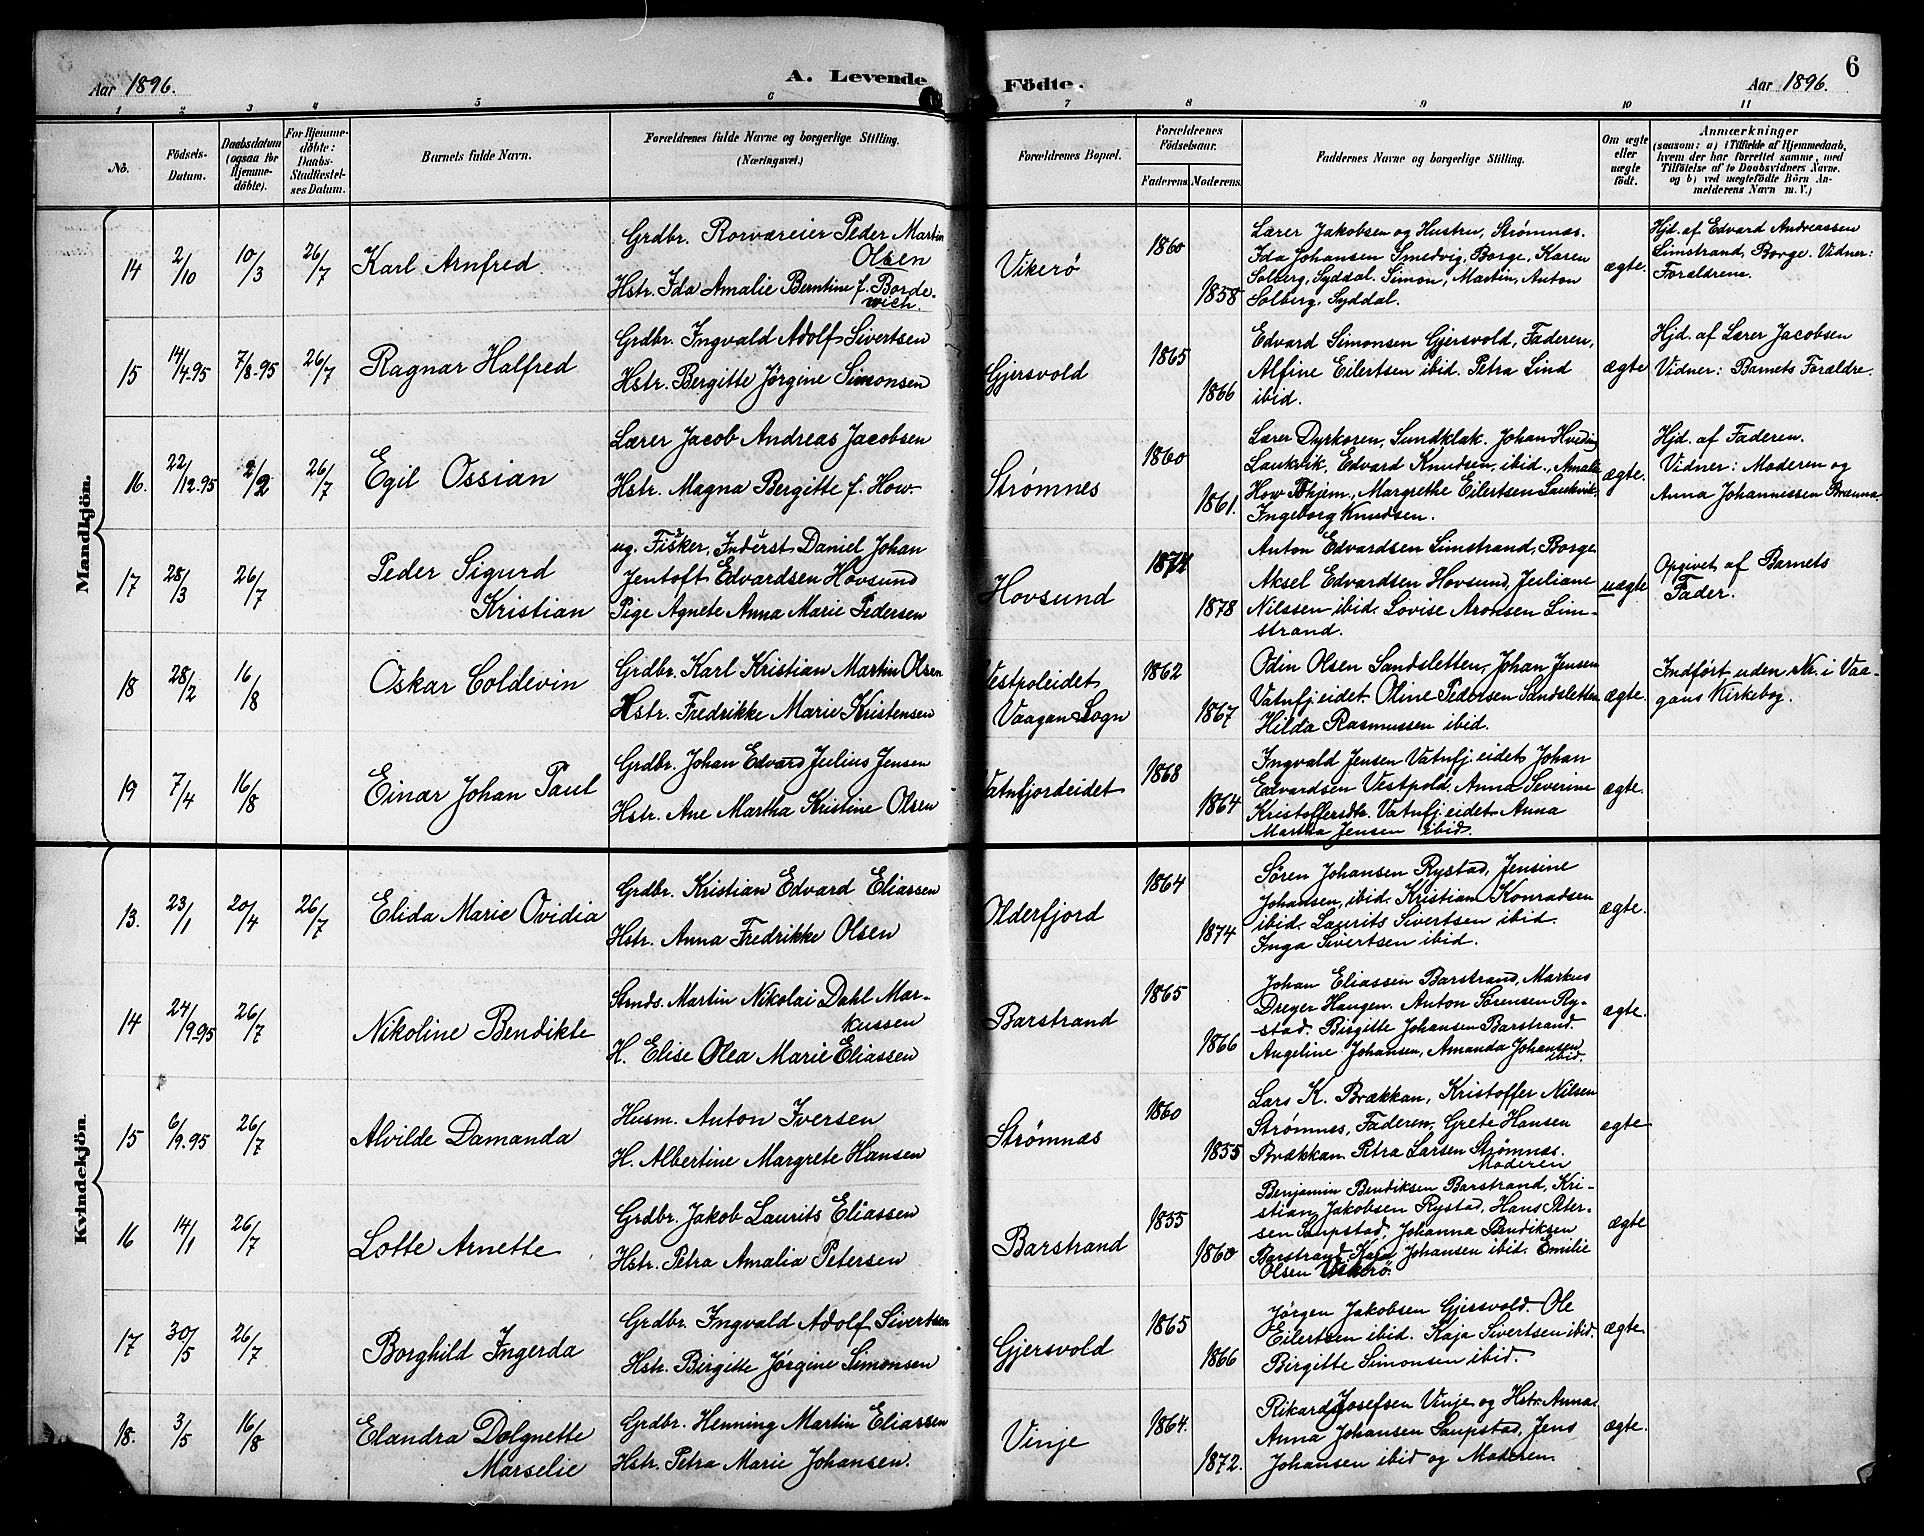 Aar 1896.
A. Levende
Födte.
Aar 1896.
6
1 2 3 4 5 6 7 8 9 10 11
No.
Födsels-
Datum.
Daabsdatum
(ogsaa for
Hjemme-
döbte).
For Hjemme-
döbte:
Daabs-
Stadfæstel-
ses Datum.
Barnets fulde Navn.
Forældrenes fulde Navne og borgerlige Stilling.
(Næringsvei.)
Forældrenes Bopæl.
Forældrenes
Födselsaar.
Faderens. Moderens.
Faddernes Navne og borgerlige Stilling.
Om ægte
eller
uægte
födt.
Anmærkninger
(saasom: a) i Tilfælde af Hjemmedaab,
hvem der har forrettet samme, med
Tilföielse af to Daabsvidners Navne.
og b) ved uægtefödte Börn An-
melderens Navn m. V.)
Mandkjön.
14
2/10
10/3
26/7
Karl Arnfred
Grdbr. Rorværeier Peder Martin
Olsen
Hstr. Ida Amalie Berntine f. Borde-
wich.
Vikerö
1860
1858
Lærer Jakobsen og Hustru, Strømnæs.
Ida Johansen Smedvig, Borge, Karen
Solberg, Syddal. Simon, Martin, Anton
Solberg, Syddal.
ægte.
Hjd. af Edvard Andreassen
Limstrand, Borge. Vidner:
Forældrene.
15
14/4-95
7/8-95
26/7
Ragnar Halfred
Grdbr. Ingvald Adolf Sivertsen
Hstr. Bergitte Jørgine Simonsen
Gjersvold
1865
1866
Edvard Simonsen Gjersvold, Faderen,
Alfine Eilertsen ibid. Petra Lind
ibid.
ægte
Hjd. af Lærer Jacobsen
Vidner: Barnets Forældre.
16.
22/12-95
2/2
26/7
Egil Ossian
Lærer Jacob Andreas Jacobsen
Hstr. Magna Bergitte f. How-
Strømnes
1860
1861.
Lærer Dyrkoren, Sundklak. Johan Hveding
Laukvik, Edvard Knudsen, ibid., Amalie
How Bøhjem, Margrethe Eilertsen Laukvik,
Ingeborg Knudsen.
ægte.
Hjd. af Faderen.
Vidner: Moderen og
Anna Johannessen Brænna
17
28/3
26/7
Peder Sigurd
Kristian
ug. Fisker, Inderst Daniel Johan
Jentoft Edvardsen Hovsund
Pige Agnete Anna Marie Pedersen
Hovsund
1874
1878
Anton Edvardsen Limstrand, Borge
Aksel Edvardsen Hovsund, Juliane
Nilssen ibid. Lovise Aronsen Lim-
strand.
uægte
Opgivet af Barnets
Fader.
18
28/2
16/8
Oskar Coldevin
Grdbr. Karl Kristian Martin Olsen
Hstr. Fredrikke Marie Kristensen
Vestpoleidet
Vaagan Sogn
1862
1867
Odin Olsen Sandsletten, Johan Jensen
Vatnfj.eidet. Oline Pedersen Sandsletten
Hilda Rasmussen ibid.
ægte.
Indført uden Nr. i Vaa-
gans Kirkebog.
19
7/4
16/8
Einar Johan Paul
Grdbr. Johan Edvard Julius Jensen
Hstr. Ane Martha Kristine Olsen
Vatnfjordeidet
1868
1864
Ingvald Jensen Vatnfj.eidet Johan
Edvardsen Vestpold, Anna Severine
Kristoffersdtr. Vatnfj.eidet Anna
Martha Jensen ibid.
ægte.
Kvindekjön.
13.
23/1
20/4
26/7
Elida Marie Ovidia
Grdbr. Kristian Edvard Eliassen
Hstr. Anna Fredrikke Olsen
Olderfjord
1864
1874
Søren Johansen Rystad, Jensine
Johansen, ibid. Kristian Konradsen
ibid. Laurits Sivertsen ibid.
Inga Sivertsen ibid.
ægte.
14
24/9-95
26/7
Nikoline Bendikte
Stnds. Martin Nikolai Dahl Mar-
kussen
H. Elise Olea Marie Eliassen
Barstrand
1865
1866
Johan Eliassen Barstrand, Markus
Dreyer Haugen. Anton Sørensen Ry-
stad. Birgitte Johansen Barstrand.
Angeline Johansen, Amanda Johansen
ibid.
ægte.
15
6/9.95
26/7
Alvilde Damanda
Husm. Anton Iversen
H. Albertine Margrete Hansen
Strømnæs
1860
1855
Lars K. Brækkan, Kristoffer Nilsen
Strømnes, Faderen, Grete Hansen
Brækkan. Petra Larsen Strømnæs.
Moderen
ægte
16
14/1
26/7
Lotte Arnette
Grdbr. Jakob Laurits Eliassen
Hstr. Petra Amalia Petersen
Barstrand
1855
1860
Benjamin Bendiksen Barstrand, Kri-
stian Jakobsen Rystad, Hans Peter-
sen Saupstad, Johanna Bendiksen
Barstrand, Kaja Johansen ibid. Emilie
Olsen Vikerö.
ægte
17
30/5
26/7
Borghild Ingerda
Grdbr. Ingvald Adolf Sivertsen
Hstr. Birgitte Jørgine Simonsen
Gjersvold
1865
1866
Jørgen Jakobsen Gjersvold. Ole
Eilertsen ibid. Kaja Sivertsen ibid.
Birgitte Simonsen ibid.
ægte
18.
3/5
16/8
Elandra Dolgnette
Marselie
Grdbr. Henning Martin Eliassen
Hstr. Petra Marie Johansen.
Vinje
1864.
1872.
Rikard Josefsen Vinje og Hstr. Anna.
Anna Johansen Saupstad, Jens
Johansen ibid og Moderen.
ægte.